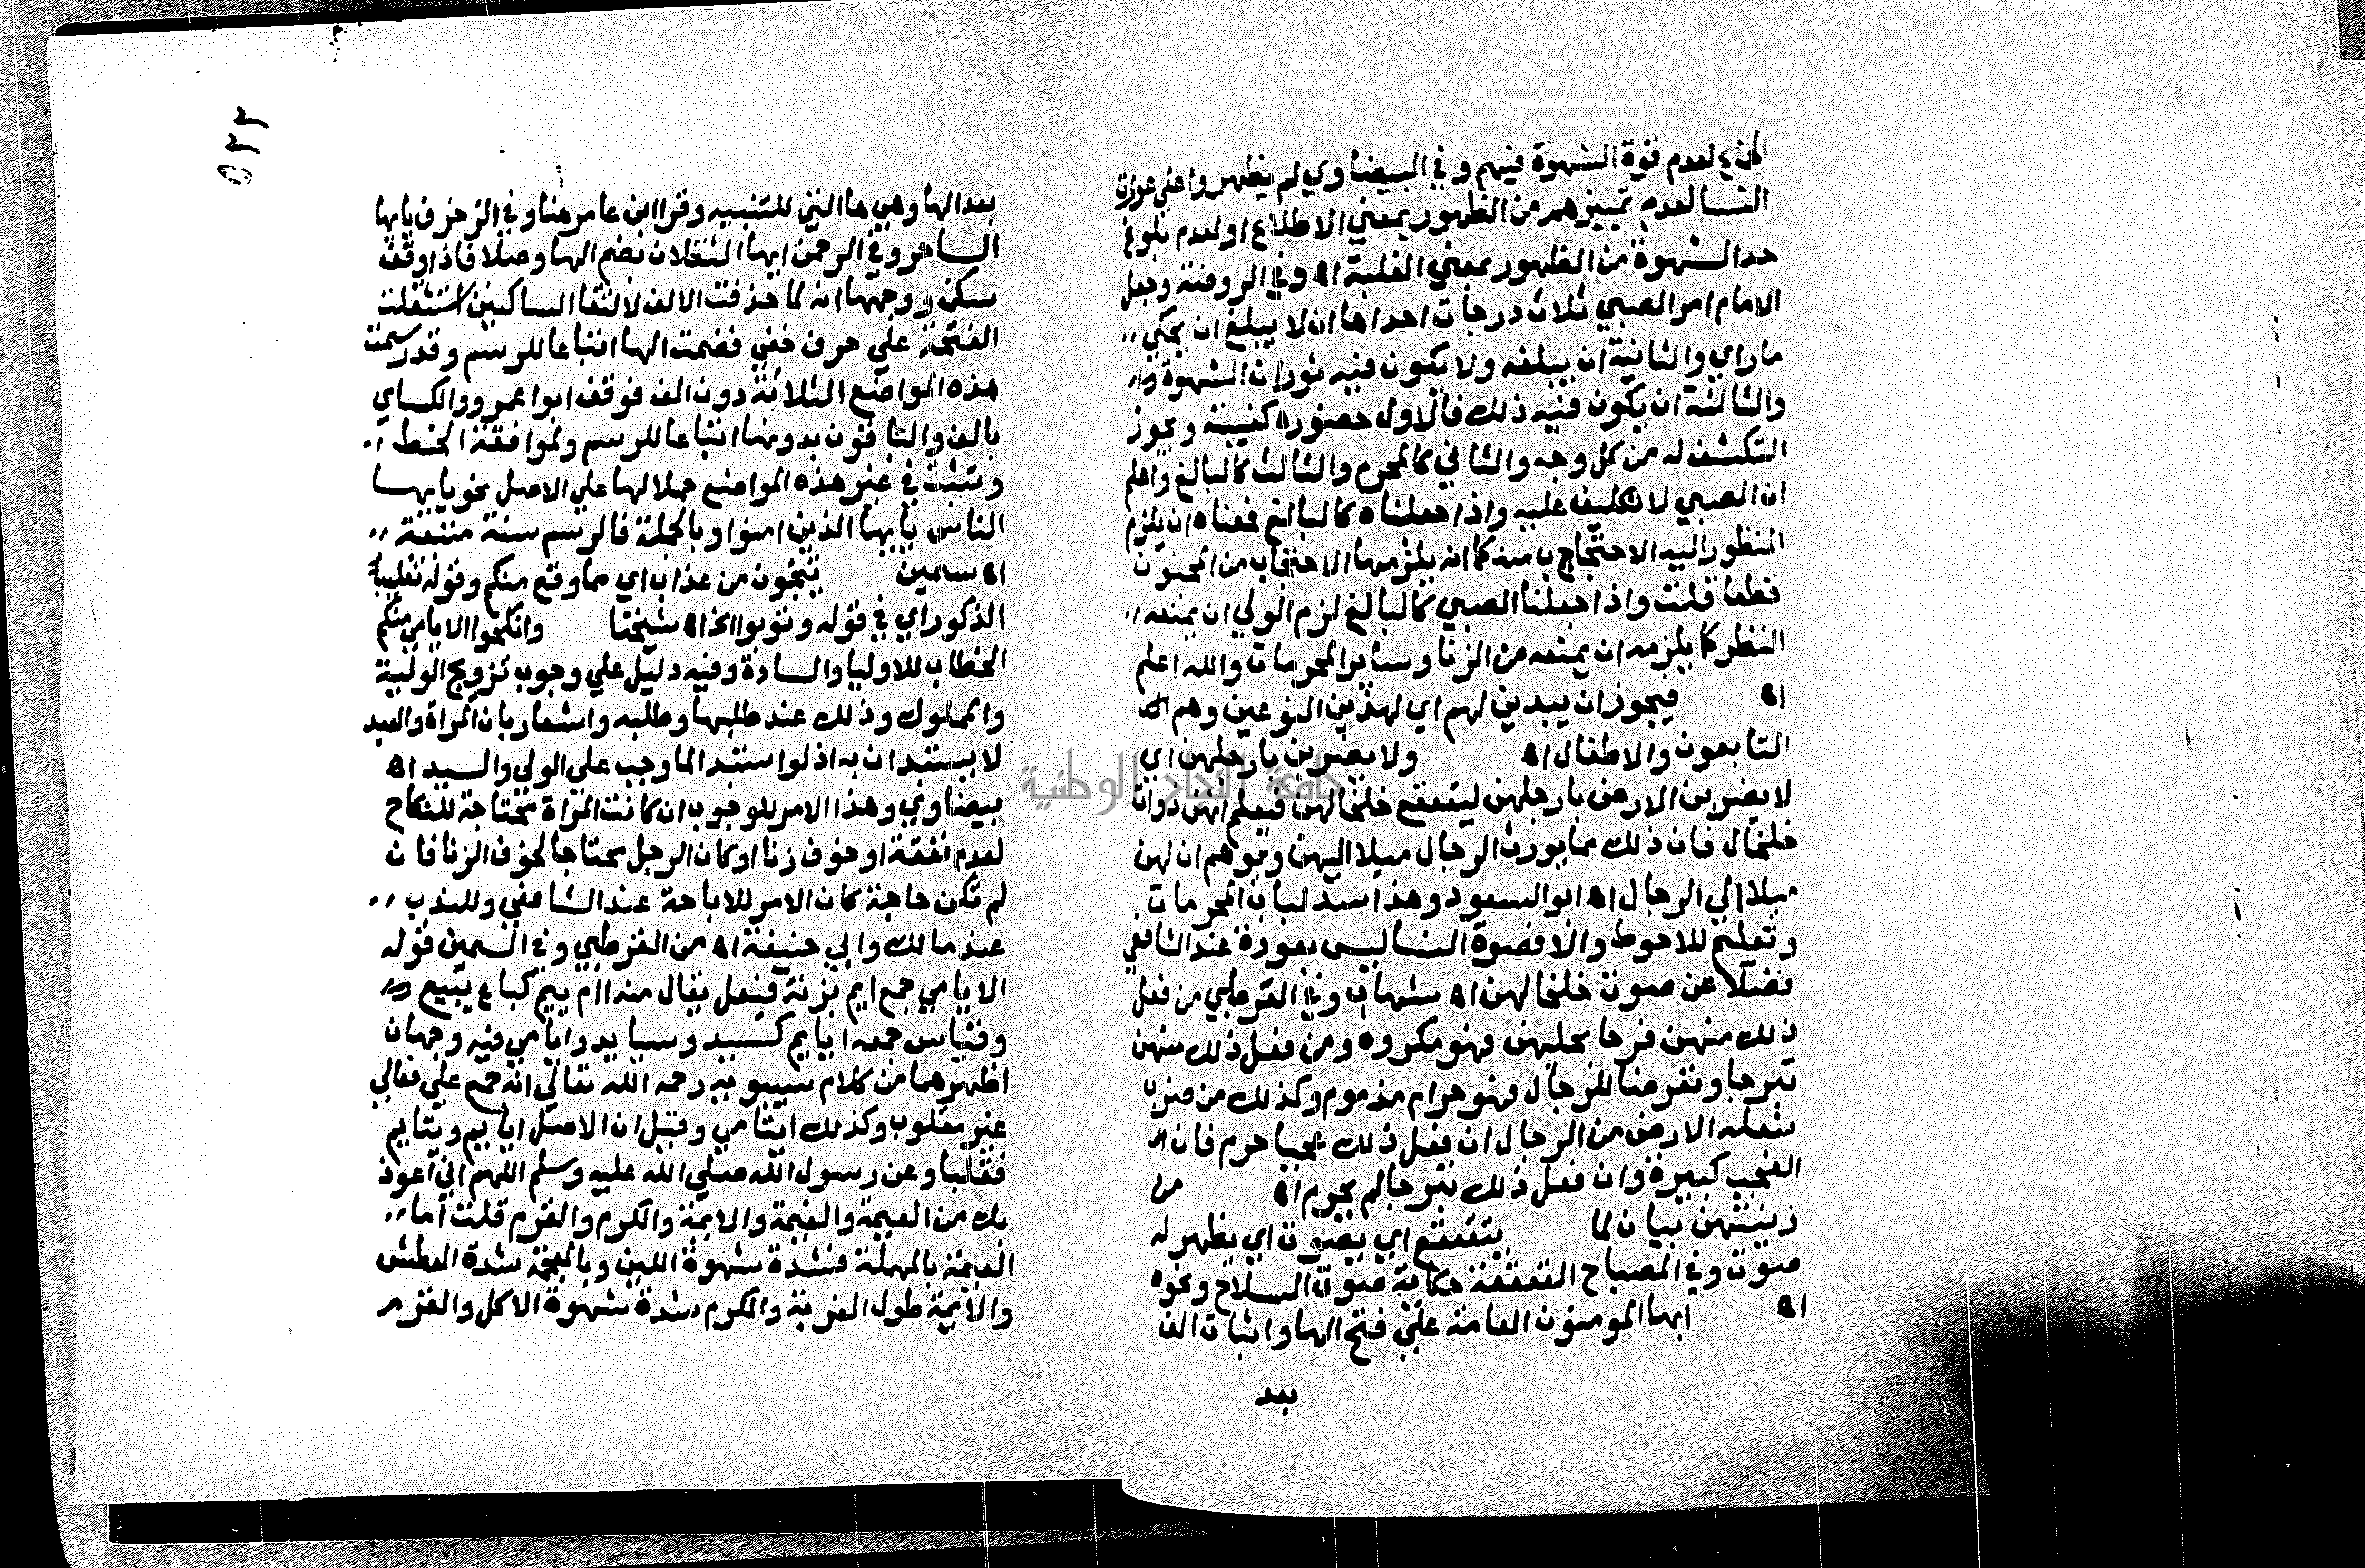 لعدم قوة الشهوة فيهم وفي البيضاوي لم يظهروا علي عورات
النسا لعدم تمييزهم من الظهور بمعني الاطلاع او لعدم بلوغ
حد الشهوة من الظهور بمعني الغلبة اه وفي الروضة وجعل
الامام امر الصبي ثلاث درجات احداها ان لا يبلغ ان يحكي
ما راي والثانية ان يبلغه ولا يكون فيه ثوران الشهوة
والثالثة ان يكون فيه ذلك فالاول حضوره كغيبته ويجوز
التكشف له من كل وجه والثاني كالمحرم والثالث كالبالغ واعلم
ان الصبي لا تكليف عليه واذا جعلناه كالبالغ فمعناه ان يلزم
المنظور اليه الاحتجاب منه كما انه يلزمها الاحتجاب من المجنون
قطعا قلت واذا جعلنا الصبي كالبالغ لزم الولي ان يمنعه
النظر كما يلزمه ان يمنعه من الزنا وساير المحرمات والله اعلم
اه فيجوز ان يبدين لهم اي لهذين النوعين وهم
التابعون والاطفال اه ولا يضربن بارجلهن اي
لا يضربن الارض بارجلهن ليتقعقع خلخالهن فيعلم انهن ذوات
خلخال فان ذلك مما يورث الرجال ميلا اليهن ويوهم ان لهن
ميلا الي الرجال اه ابو السعود وهذا سد لباب المحرمات
وتعليم للاحوط والا فصوت النسا ليس بعورة عند الشافعي
فضلا عن صوت خلخالهن اه شهاب وفي القرطبي من فعل
ذلك منهن فرحا بحليهن فهو مكروه ومن فعل ذلك منهن
تبرجا وتعرضا للرجال فهو حرام مذموم وكذلك من ضرب
بنعله الارض من الرجال ان فعل ذلك عجبا حرم فان
العجب كبيرة وان فعل ذلك تبرجا لم يحرم اه من
زينتهن بيان لما يتقعقع اي يصوت اي يظهر له
صوت وفي المصباح القعقعة حكاية صوت السلاح ونحوه
اه ايها المومنون العامة علي فتح الها واثبات الف
بعد
٥٢٢
بعد الها وهي ها التي للتنبيه وقرا ابن عامر هنا وفي الزخرف يايها
الساحر وفي الرحمن ايها الثقلان بضم الها وصلا فاذا وقف
سكن ووجهها انه لما حذفت الالف لالتقا الساكنين استثقلت
الفتحة علي حرف خفي فضمت الها اتباعا للرسم وقد رسمت
هذه المواضع الثلاثة دون الف فوقف ابوا عمرو والكساي
بالف والباقون بدونها اتباعا للرسم ولموافقة الخط
وتثبت في غير هذه المواضع حملا لها علي الاصل نحو يايها
الناس يايها الذين امنوا وبالجملة فالرسم سنة متبعة
اه سمين تنجون من عذاب اي مما وقع منكم وقوله تغليب
الذكور اي في قوله وتوبوا الخ اه شيخنا وانكحوا الايامي منكم
الخطاب للاوليا والسادة وفيه دليل علي وجوب تزويج المولية
والمملوك وذلك عند طلبها وطلبه واشعار بان المراة والعبد
لا يستبدان به اذ لو استبدا لما وجب علي الولي والسيد اه
بيضاوي وهذا الامر للوجوب ان كانت المراة محتاجة للنكاح
لعدم نفقة او خوف زنا او كان الرجل محتاجا لخوف الزنا فان
لم تكن حاجة كان الامر للاباحة عند الشافعي وللندب
عند مالك وابي حنيفة اه من القرطبي وفي السمين قوله
الايامي جمع ايم بزنة فيعل يقال منه ام ييم كباع يبيع
وقياس جمعه ايايم كسيد وسيايد وايامي فيه وجهان
اظهرهما من كلام سيبويه رحمه الله تعالي انه جمع علي فعالي
غير مقلوب وكذلك ايتامي وقيل ان الاصل ايايم ويتايم
فقلبا وعن رسول الله صلي الله عليه وسلم اللهم اني اعوذ
بك من العيمة والغيمة والايمة والكرم والقرم قلت اما
العيمة بالمهملة فشدة شهوة اللبن وبالمعجمة شدة العطش
والايمة طول العزبة والكرم شدة شهوة الاكل والقرم
جامعة النجاح الوطنية